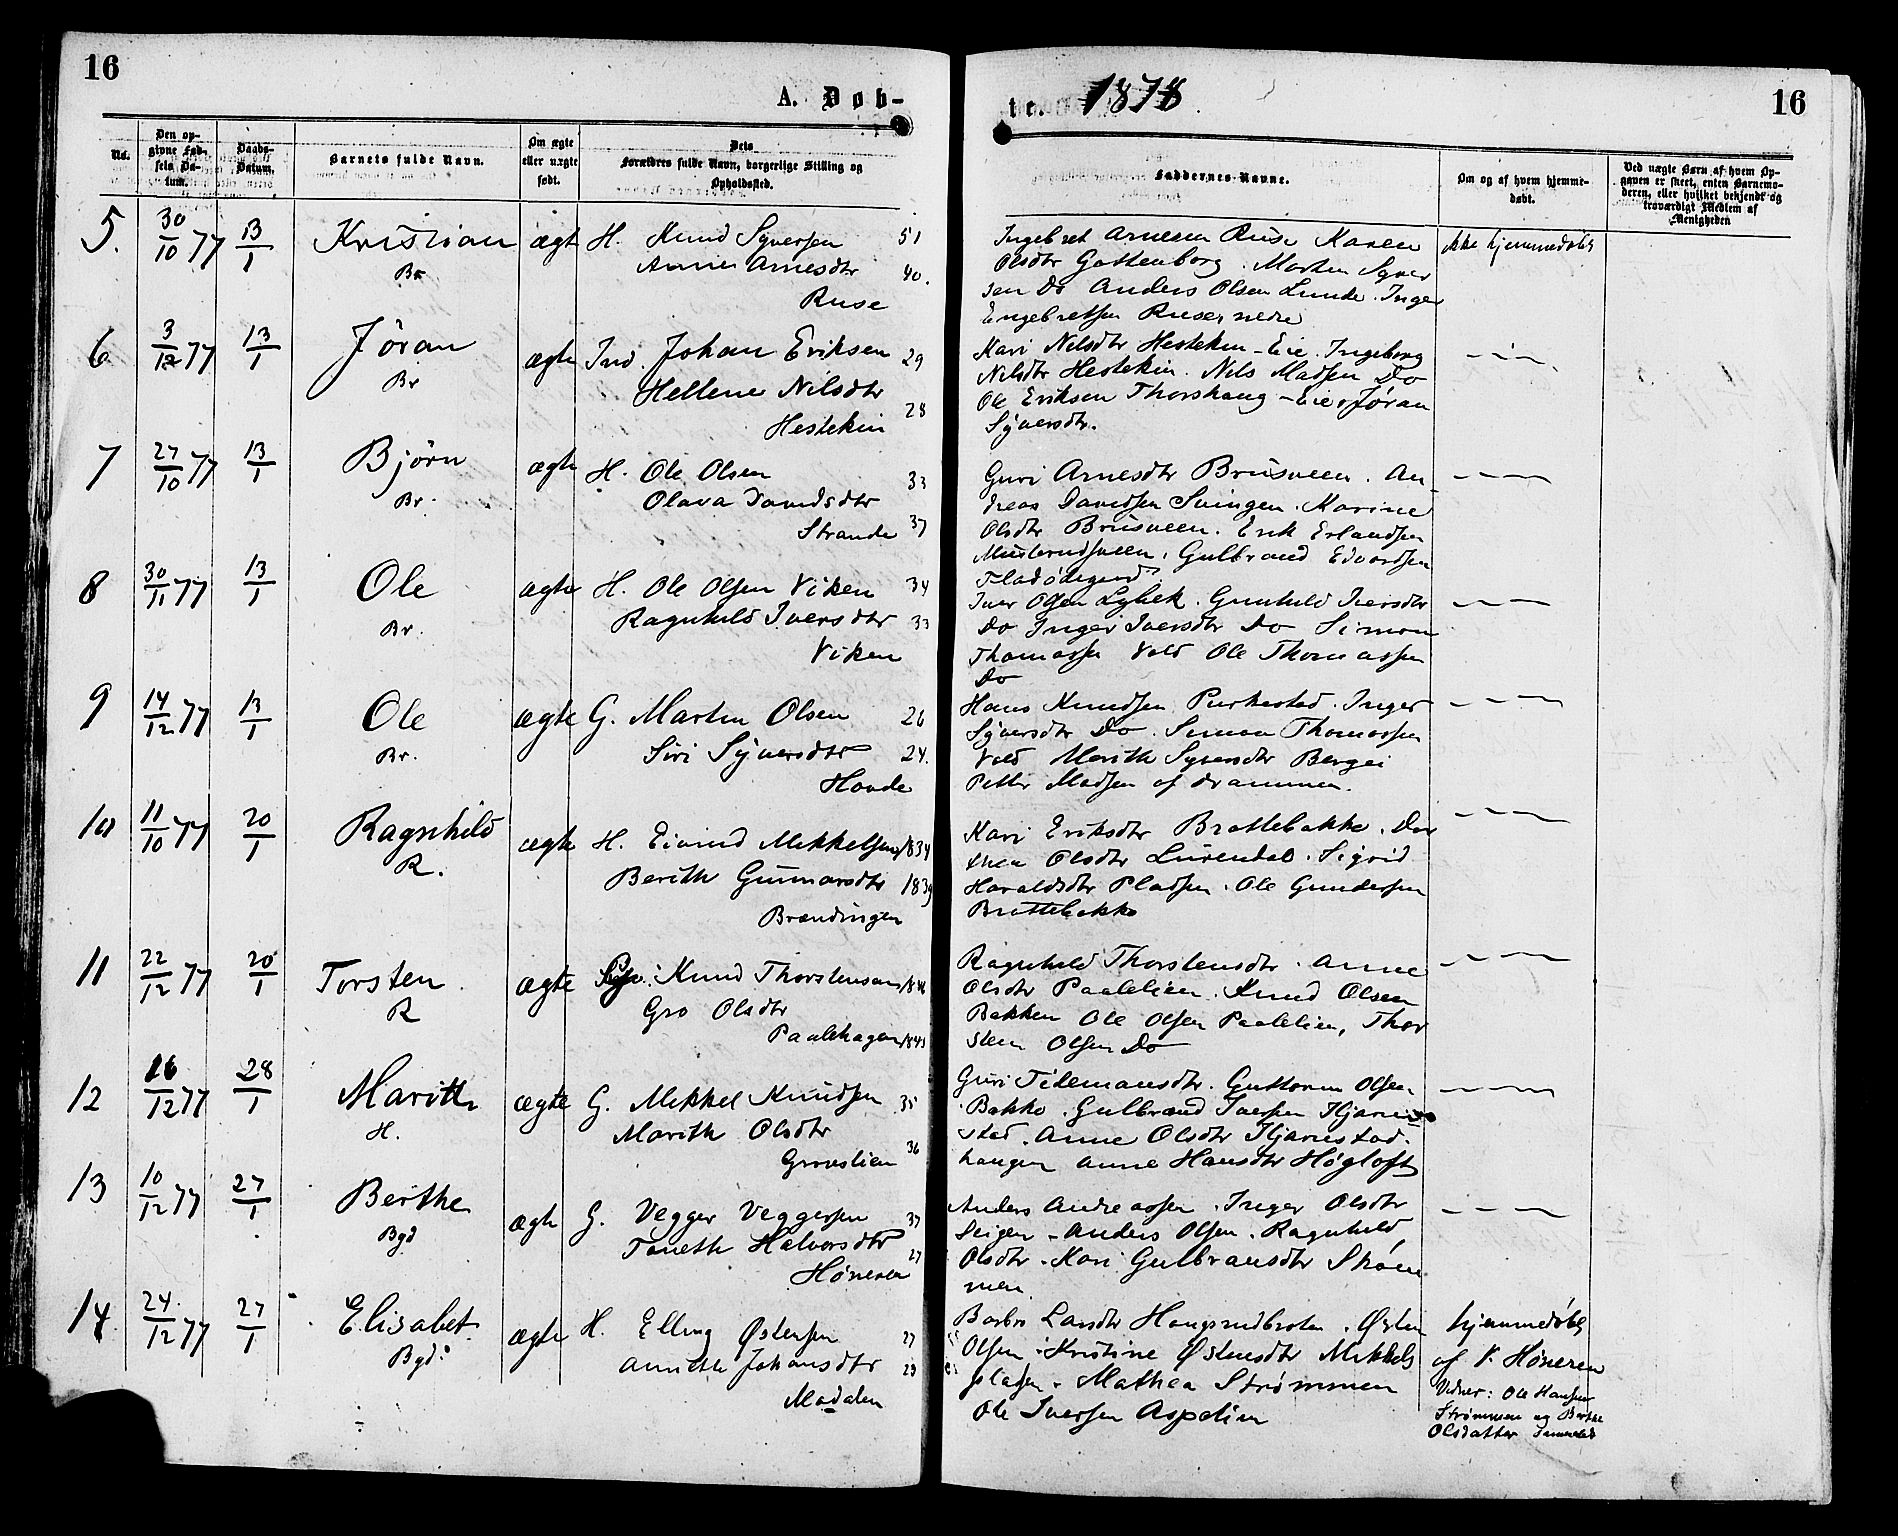 16
A. Døb-
No.
Den op-
givne Fød-
sels Da-
tum.
Daabs-
Datum.
Barnets fulde Navn.
Om ægte
eller uægte
født.
Dets
Forældres fulde Navn, borgerlige Stilling og
Opholdssted.
5. 30/10 77 13/1 Kristian ægte H. Knud Syversen 51
Br Anne Arnesdtr 40.
Ruse
6 3/12 77 13/1 Jøran ægte Ind. Johan Eriksen 29
Br Hellene Nilsdtr 28
Hestekin
7 27/10 77 13/1 Björn ægte H. Ole Olsen 33
Br. Olava Davidsdtr
Strande 37
8 30/11 77 13/1 Ole ægte H. Ole Olsen Viken 34
Br. Ragnhild Iversdtr 33
Viken
9 14/12 77 13/1 Ole ægte G. Martin Olsen 26
Br. Siri Syversdtr 24.
Hovde
10 11/10 77 20/1 Ragnhild ægte H. Eivind Mikkelsen 1834
R. Berith Gunnarsdtr 1839
Brændingen
11 22/12 77 20/1 Torsten ægte Knud Thorstensen
R Gro Olsdtr
Paalehagen
12 16/12 77 28/1 Marith ægte G. Mikkel Knudsen 35
H. Marith Olsdtr 36
Grovslien
13 10/12 77 27/1 Berthe ægte G. Vegger Veggersen 37
Bgd Taneth Halvorsdtr 27
Høneren
14 24/12 77 27/1 Elisabet ægte H. Elling Østensen 27
Bgd: Anneth Johansdtr 23
Modalen
te. 1878
16
Faddernes Navne.
Om og af hvem hjemme-
døbt.
Ved uægte Børn af hvem Op-
gaven er skeet, enten Barnemo-
deren, eller hvilket bekjendt og
troværdigt Medlem af
Menigheden
Ingebret Arnesen Ruse Karen ikke hjemmedøbt
Olsdtr Gottenborg. Morten Syver
sen Do Anders Olsen Lunde. Inger
Engebretsen Ruse, nedre
Kari Nilsdtr Hestekin-Eie. Ingeborg
Nilsdtr Hestekin. Nils Madsen Do
Ole Eriksen Thorshaug-Eie, Jøran
Syversdtr.
Guri Arnesdtr Brusveen. An
dreas Davidsen Svingen. Karine
Olsdtr Brusveen. Erik Erlandsen
Gulbrand Edvardsen
Iver Olsen Lybek. Gunhild Iversdtr
Do Inger Iversdtr Do Simon
Thomassen Vold Ole Thomassen
Do
Hans Knudsen Purkestad. Inger
Syversdtr Do. Simon Thomassen
Vold Marith Syversdtr Berget
Petter Madsen af Drammen.
Kari Eriksdtr Brattebakke. Dor
thea Olsdtr Lurendal. Sigrid
Haraldsdtr Pladsen. Ole Gundersen
Brattebakke
Ragnhild Thorstensdtr. Anne
Olsdtr Paalelien. Knud Olsen
Bakken Ole Olsen Paalelien, Thor
sten Olsen Do
Guri Tidemansdtr. Guttorm Olsen
Bakke. Gulbrand Iversen Hjarne
stad. Anne Olsdtr Hjarnestad-
haugen Anne Hansdtr Høgloft
Anders Andreassen. Inger Olsdtr
Seigen. Anders Olsen. Ragnhild
Olsdtr. Kari Gulbransdtr Strøm
men.
Barbro Larsdtr Haugsrudbroten. Østen hjemmedøbt
Olsen. Kristine Østensdtr Mikkels af V. Høneren
pladsen. Mathea Strømmen Vidner: Ole Hansen
Ole Iversen Aspelien Strømmen og Berthe
Olsdatter